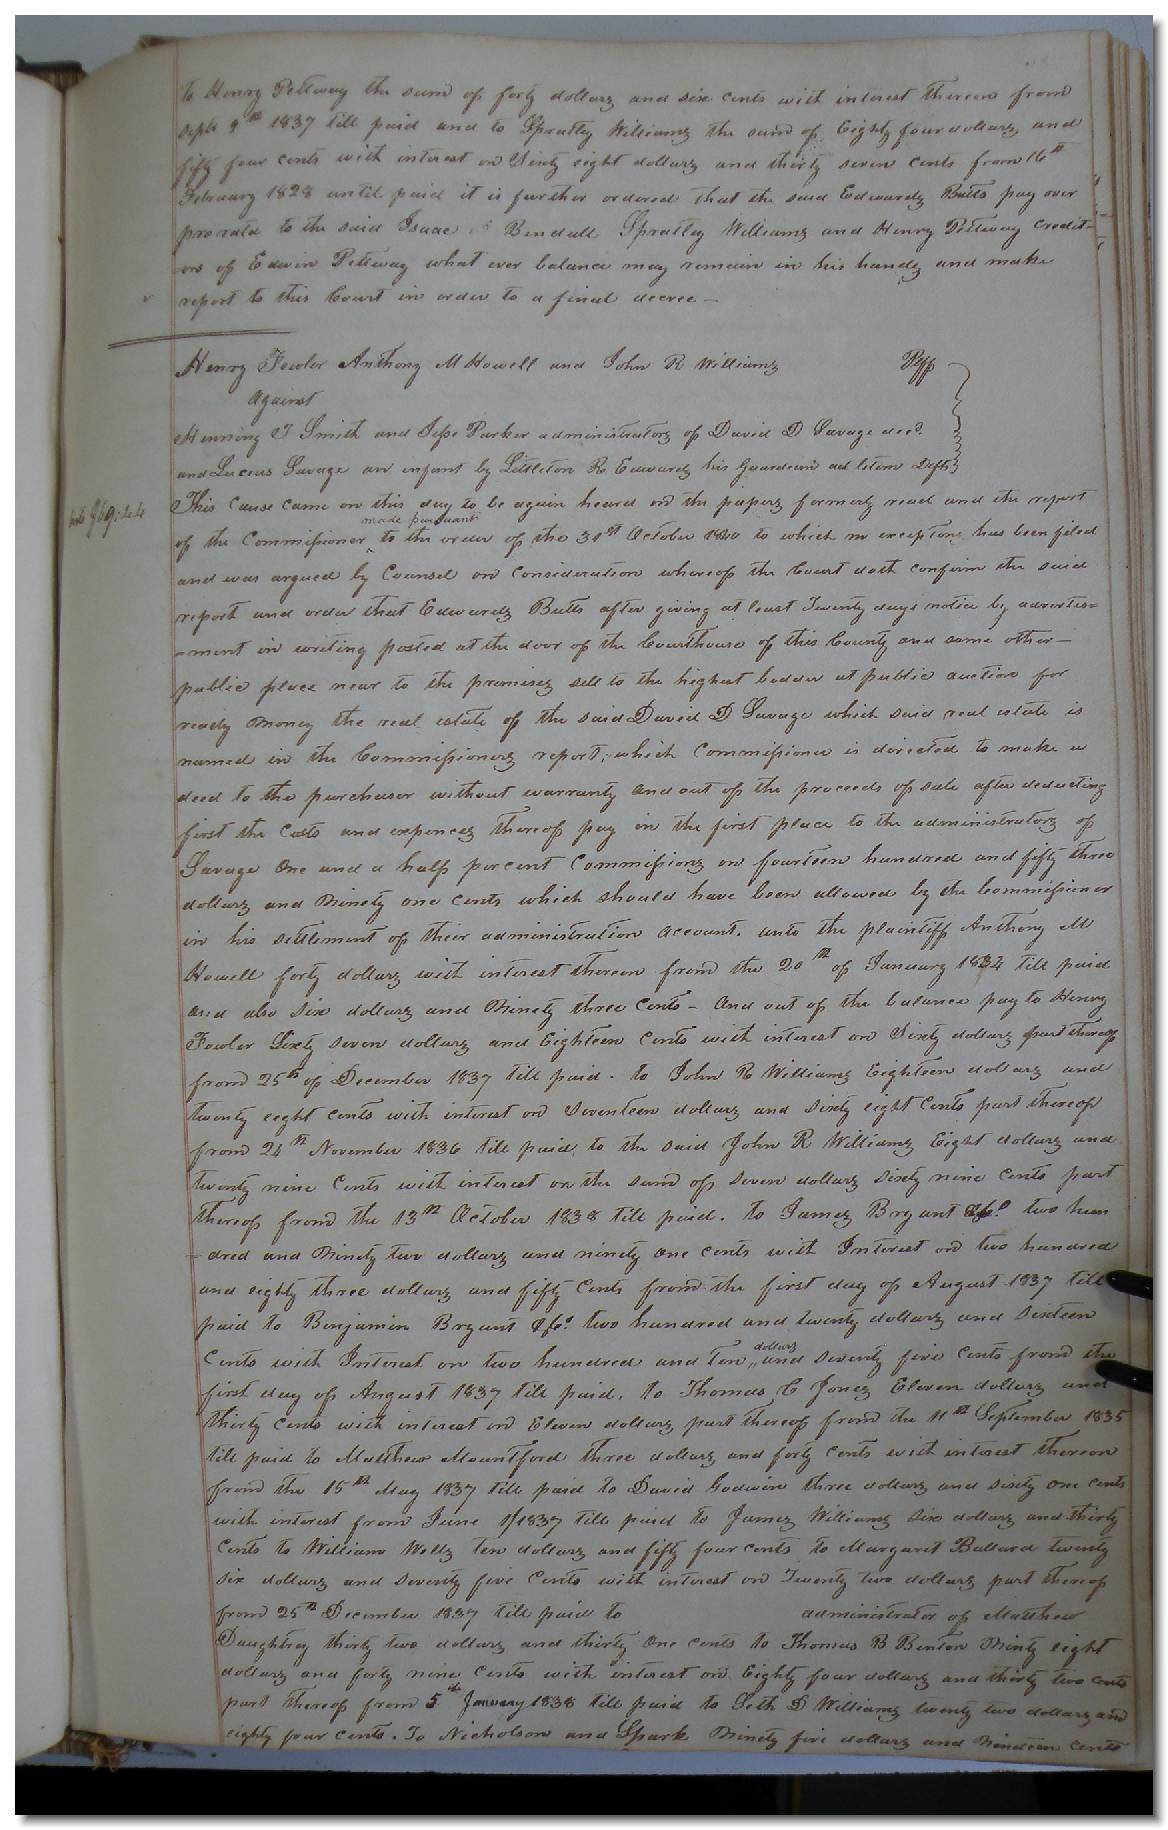 to Henry Pettway the sum of forty dollars and six cents with interest thereon from
Sept 9th 1837 till paid and to Spratley Williams the sum of Eighty four dollars and
fifty four cents with interest on Sixty eight dollars and thirty seven cents from 16th
February 1828 until paid it is further ordered that the said Edwards Butts pay over
pro rata to the said Isaac Bendall Spratley Williams and Henry Pettway credit-
ors of Edwin Pettway what ever balance may remain in his hands and make
report to this Court in order to a final decree –
Henry Fowler Anthony M Howell and John R Williams Plff
against
Henning T Smith and Jesse Parker administrators of David D Savage decd.
and Lucius Savage an infant by Littleton R Edwards his Guardian ad litem Defts
This Cause came on this day to be again heard on the papers formerly read and the report
made pursuant
of the Commissioner to the order of the 31st October 1840 to which no exceptions has been filed
and was argued by Counsel on Consideration whereof the Court doth confirm the said
report and order that Edwards Butts after giving at least Twenty days notice by advertis=
=ment in writing posted at the door of the Courthouse of this County and some other –
public place near to the premises sell to the highest bidder at public auction for
ready money the real estate of the said David D Savage which said real estate is
named in the Commissioners report, which Commissioner is directed to make a
deed to the purchaser without warranty and out of the proceeds of sale after deducting
first the Costs and expences thereof pay in the first place to the administrators of
Savage One and a half percent Commissions on fourteen hundred and fifty three
dollars and Ninety one cents which should have been allowed by the Commissioner
in his settlement of their administration account. unto the plaintiff Anthony M
Howell forty dollars with interest thereon from the 20th of January 1834 till paid
and also six dollars and Ninety three cents – And out of the balance pay to Henry
Fowler Sixty seven dollars and Eighteen Cents with interest on Sixty dollars part thereof
from 25th of December 1837 till paid. to John R Williams Eighteen dollars and
twenty eight cents with interest on Seventeen dollars and sixty eight Cents part thereof
from 24th November 1836 till paid, to the said John R Williams Eight dollars and
twenty nine Cents with interest on the sum of seven dollars sixty nine cents part
thereof from the 13th October 1838 till paid. to James Bryant &c. two hun
=dred and Ninety two dollars and ninety one cents with Interest on two hundred
and eighty three dollars and fifty Cents from the first day of August 1837 till
paid to Benjamin Bryant &c. two hundred and twenty dollars and sixteen
dollars
Cents with Interest on two hundred and ten and seventy five Cents from the
first day of August 1837 till paid, to Thomas C Jones Eleven dollars and
thirty Cents with interest on Eleven dollars part thereof from the 11th September 1835
till paid to Matthew Mountford three dollars and forty cents with interest thereon
from the 15th May 1837 till paid to David Godwin three dollars and sixty one cents
with interest from June 1/1837 till paid to James Williams Six dollars and thirty
Cents to William Wells ten dollars and fifty four cents to Margaret Ballard twenty
six dollars and Seventy five Cents with interest on Twenty two dollars part thereof
from 25th December 1837 till paid to administrator of Matthew
Daughtrey thirty two dollars and thirty One cents to Thomas B Benton Ninty eight
dollars and forty nine Cents with interest on Eighty four dollars and thirty two cents
part thereof from 5th January 1838 till paid to Seth D Williams twenty two dollars and
eighty four cents. To Nicholson and Spark Ninety five dollars and Nineteen cents